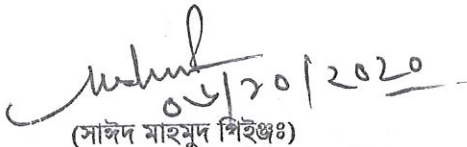 ০৬/১০/২০২০
(সাঈদ মাহমুদ পিইঞ্জঃ)